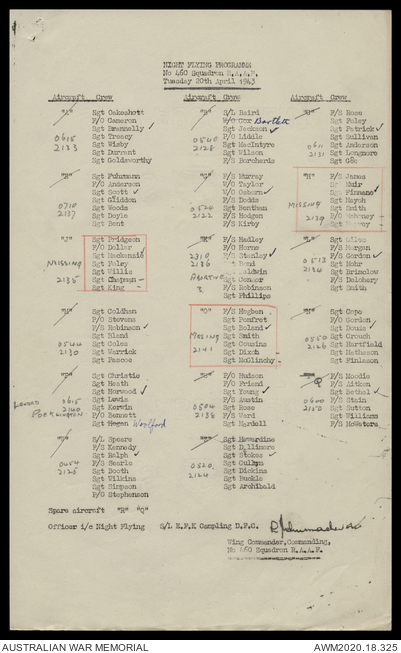 NIGHT FLYING PROGRAMME
No 460 Squadron R.A.A.F.
Tuesday 20th April 1943
Aircraft Crew
Sgt Oakeshott
F/O Cameron
Sgt Brannelly
Sgt Tresey
0615 Sgt Wisby
2133 Sgt Durrent
Sgt Goldsworthy
Sgt Fuhrmann
F/O Anderson
Sgt Scott
Sgt Gliddon
0710 Sgt Woods
2137 Sgt Doyle
Sgt Bent
"J" Sgt Pridgeon
F/O Dollar
Sgt Mackenzie
MISSING Sgt Foley
Sgt Willis
2135 Sgt Chapman
Sgt King
Sgt Coldham
P/O Stevens
F/S Robinson
Sgt Bland
0544 Sgt Coles
2130 Sgt Warrick
Sgt Pascoe
Sgt Christie
Sgt Heath
Sgt Horwood
LANDED 0615 Sgt Lewis
POCKLINGTON 2140 Sgt Kerwin
F/O Bennett
Sgt Hogan
S/L Speare
F/S Kennedy
Sgt Ralph
F/S Searle
0454 Sgt Booth
2125 Sgt Wilkins
Sgt Simpson
P/O Stephenson
Aircraft Crew
S/L Baird
W/O Cox Bartlett
Sgt Jackson
P/O Liddle
0540 Sgt MacIntyre
2128 Sgt Wilson
F/S Borcherds
"G" F/S Murray
W/O Taylor
W/O Osborn
F/S Dodds
0524 Sgt Benthan
2122 F/S Hodgen
F/S Kirby
"K" F/S Hadley
F/O Horne
2310 F/S Stanley
2136 Boni
ABORTIVE Baldwin
Sgt Connor
F/S Robinson
Sgt Phillips
"O" F/S Hogben
Sgt Pomfret
Sgt Boland
MISSING Sgt Smith
2141 Sgt Cousins
Sgt Dixon
Sgt McGlinchy
P/O Hudson
F/O Friend
Sgt Young
F/S Austin
0504 Sgt Rose
2138 F/S Ward
Sgt Myrdell
Sgt Hawardine
Sgt Dillimore
Sgt Stokes
0820 Sgt Cullum
2124 Sgt Dickins
Sgt Buckle
Sgt Archibald
Aircraft Crew
F/S Rose
Sgt Foley
Sgt Patrick
Sgt Sullivan
Sgt Anderson
2131 Sgt Longmore
Sgt Gee
"H" F/O James
Sgt Muir
Sgt Finnane
MISSING Sgt Mayoh
Sgt Smith
2139 F/S Mahoney
Sgt Giles
F/S Margan
F/S Gordon
0513 Sgt Mohr
2134 Sgt Brimelow
F/S Delohery
Sgt Smith
Sgt Cope
F/O Gordon
Sgt Douis
0550 Sgt Crouch
2126 Sgt Hartfield
Sgt Matheson
Sgt Finlason
F/S Moodie
Q F/S Aitken
Sgt Bethel
0600 F/S Stain
2150 Sgt Sutton
Sgt Williams
F/S McWaters
Spare aircraft "R" "Q"
Officer i/c Night Flying S/L E.F.K Campling D.F.C.
Wing Commander, Commanding,
No 460 Squadron R.A.A.F.
AUSTRALIAN WAR MEMORIAL
AWM2020.18.325